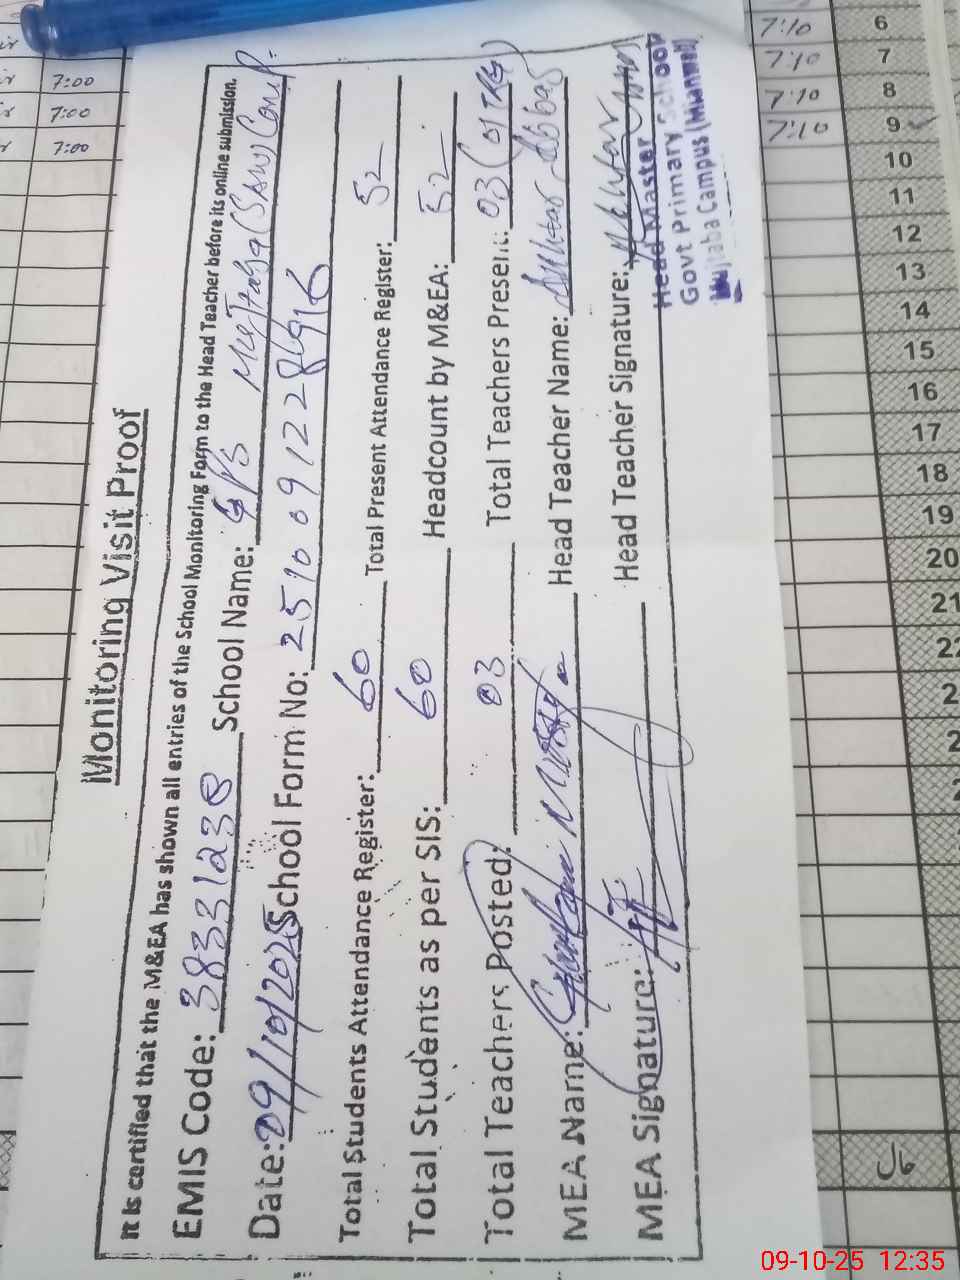 Monitoring Visit Proof
It Is certified that the M&EA has shown all entries of the School Monitoring Form to the Head Teacher before its online submission.
EMIS Code: 38331238 School Name: GPS
Date: 09/10/2025 School Form No:
Total Students Attendance Register: 60 Total Present Attendance Register: 52
Total Students as per SIS: 60 Headcount by M&EA: 52
Total Teachers Posted: 03 Total Teachers Present: 03
MEA Name: Head Teacher Name: Akhtar Abbas
MEA Signature: Head Teacher Signature:
Head Master
Govt Primary School
Mujtaba Campus (Mianwali)
7:00
7:00
7:00
7:10
7:10
7:10
7:10
6
7
8
9
10
11
12
13
14
15
16
17
18
19
20
21
22
حال
09-10-25 12:35